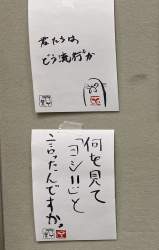 君たちは、
どう流行るか
何を見て
「ヨシ!!」と
言ったんですか?